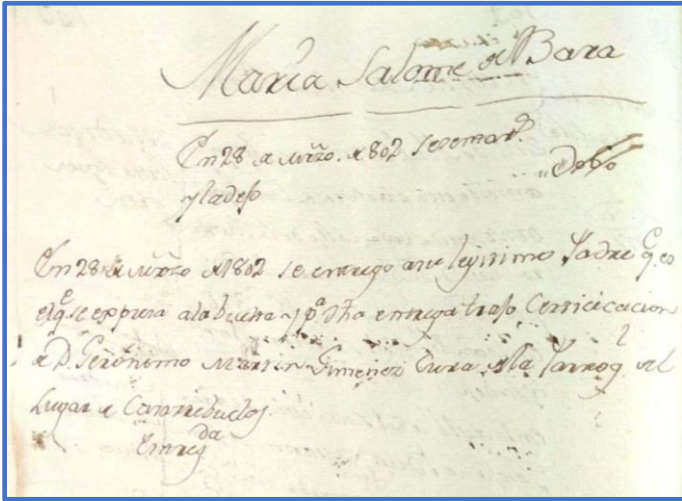 Maria Salome de Bara
En 28 de Marzo de 1802 se
y la dejo
En 28 de Marzo de 1802 se entrego a su legitimo Padre q.e es
el q.e se expresa a la buelta y p.a dha entrega trajo Certificacion
de D. Geronimo Martin Gimenez Cura de la Parroq.l del
Lugar de
Entreg.da